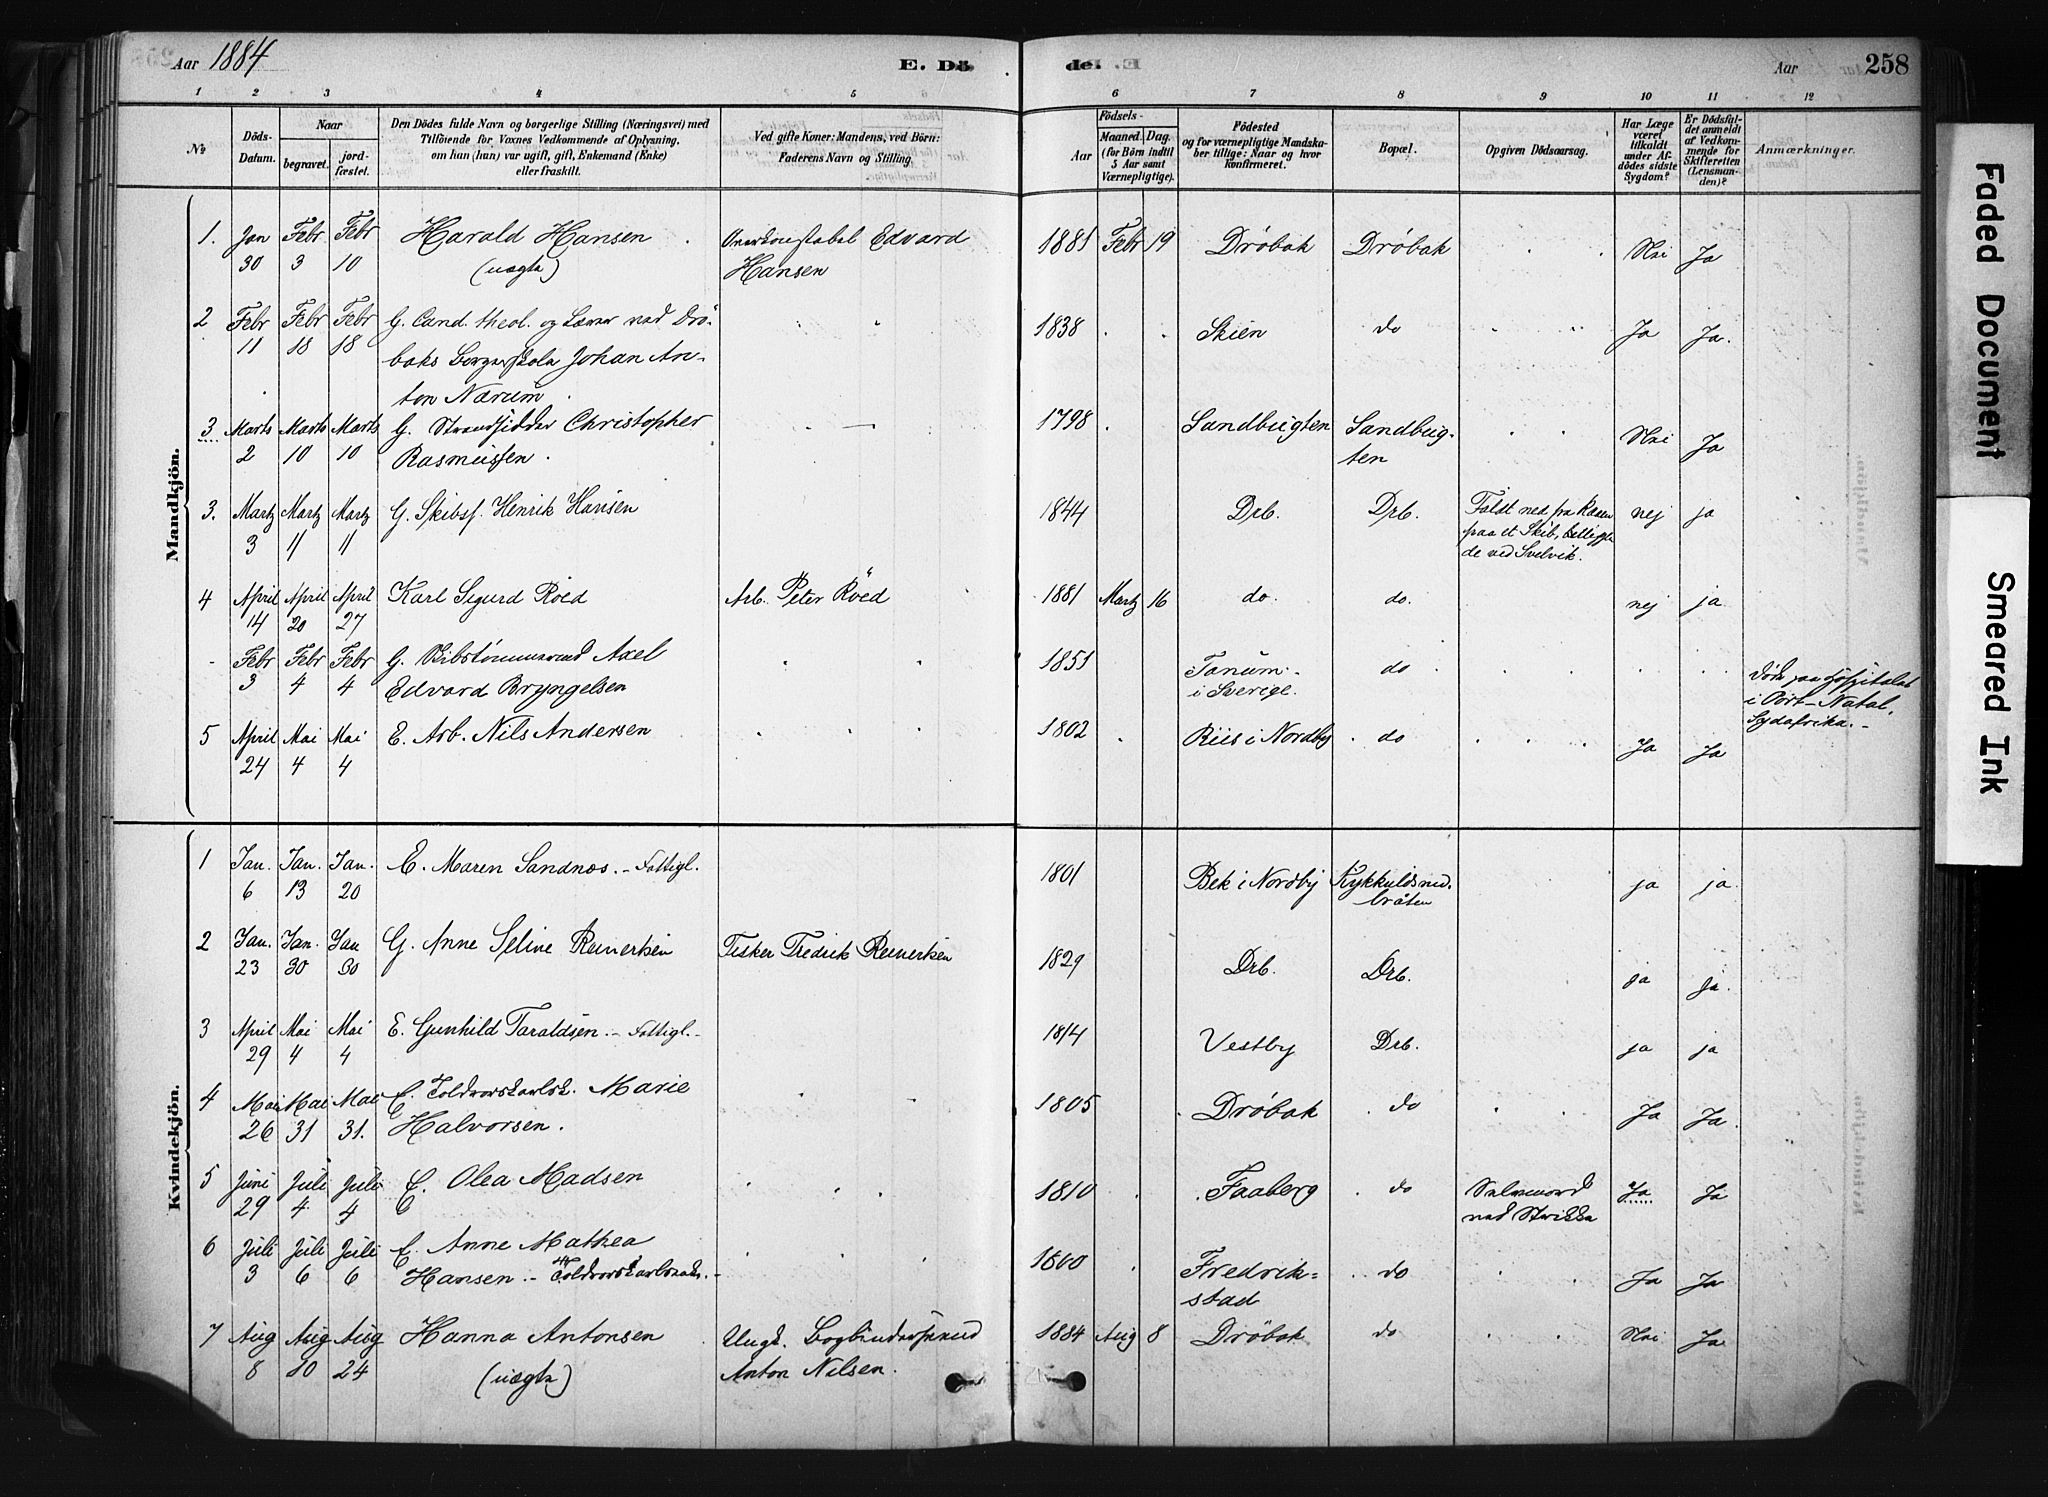 Aar 1884
E. Dö
de.
Aar
258
1 2 3 4 5 6 7 8 9 10 11 12
№
Döds-
Datum.
Naar
begravet.
jord-
fæstet.
Den Dödes fulde Navn og borgerlige Stilling (Næringsvei) med
Tilföiende for Voxnes Vedkommende af Oplysning,
om han (hun) var ugift, gift, Enkemand (Enke)
eller fraskilt.
Ved gifte Koner: Mandens, ved Börn:
Faderens Navn og Stilling.
Födsels-
Aar
Maaned. Dag.
(for Börn indtil
5 Aar samt
Værnepligtige).
Födested
og for værnepligtige Mandska-
ber tillige: Naar og hvor
konfirmeret.
Bopæl.
Opgiven Dödsaarsag.
Har Læge
været
tilkaldt
under Af-
dödes sidste
Sygdom?
Er Dödsfal-
det anmeldt
af Vedkom-
mende for
Skifteretten
(Lensman-
den)?
Anmærkninger.
Mandkjön.
1. Jan Febr Febr Harald Hansen Overkonstabel Edvard 1881 Febr 19 Drøbak Drøbak Nei Ja
30 3 10 (uægte) Hansen
2 Febr Febr Febr G. Cand. theol. og Lærer ved Drö- 1838 Skien do Ja Ja.
11 18 18 baks Borgerskole Johan An-
ton Nærum
3 Marts Marts Marts G. Strandsidder Christopher 1798 Sandbugten Sandbug- Nei Ja
2 10 10 Rasmussen. ten
3. Martz Martz Martz G. Skibsf. Henrik Hansen 1844 Drb. Drb. Faldt ned fra Raaen nej ja
3 11 11 paa et Skib, beliggen-
de ved Svelvik.
4 April April April Karl Sigurd Röed Arb. Peter Röed 1881 Martz 16 do. do. nej ja
14 20 27
- Febr Febr Febr G. Skibstømmermand Axel 1851 Tanum do Døde paa Hospitalet
3 4 4 Edvard Bryngelsen i Sverige. i Port-Natal,
Sydafrika.
5 April Mai Mai E. Arb. Nils Andersen 1802 Riis i Nordby do Ja Ja
24 4 4
Kvindekjön.
1 Jan. Jan. Jan. E. Maren Sandnæs. - Fattigl. 1801 Bek i Nordby ja ja
6 13 20 bråten
2 Jan. Jan. Jan G. Anne Seline Reinertsen Fisker Fredrik Reinertsen 1829 Drb. Drb. ja ja.
23 30 30
3 April Mai Mai E. Gunhild Taraldsen. - Fattigl. - 1814 Vestby Drb. ja ja
29 4 4
4 Mai Mai Mai E. Toldrorskarlsk. Marie 1805 Drøbak do Ja Ja
26 31 31. Halvorsen.
5 Juni Juli Juli E. Olea Madsen 1810 Faaberg do Selvmord Ja Ja
29 4 4 ved Strikke
6 Juli Juli Juli E. Anne Mathea 1800 Fredrik- do Ja Ja
3 6 6 Hansen. - stad
7 Aug Aug Aug Hanna Antonsen Ungk. Bogbindersvend 1884 Aug 8 Drøbak do Nei Ja
8 10 24 (uægte) Anton Nilsen.
Faded Document
Smeared Ink